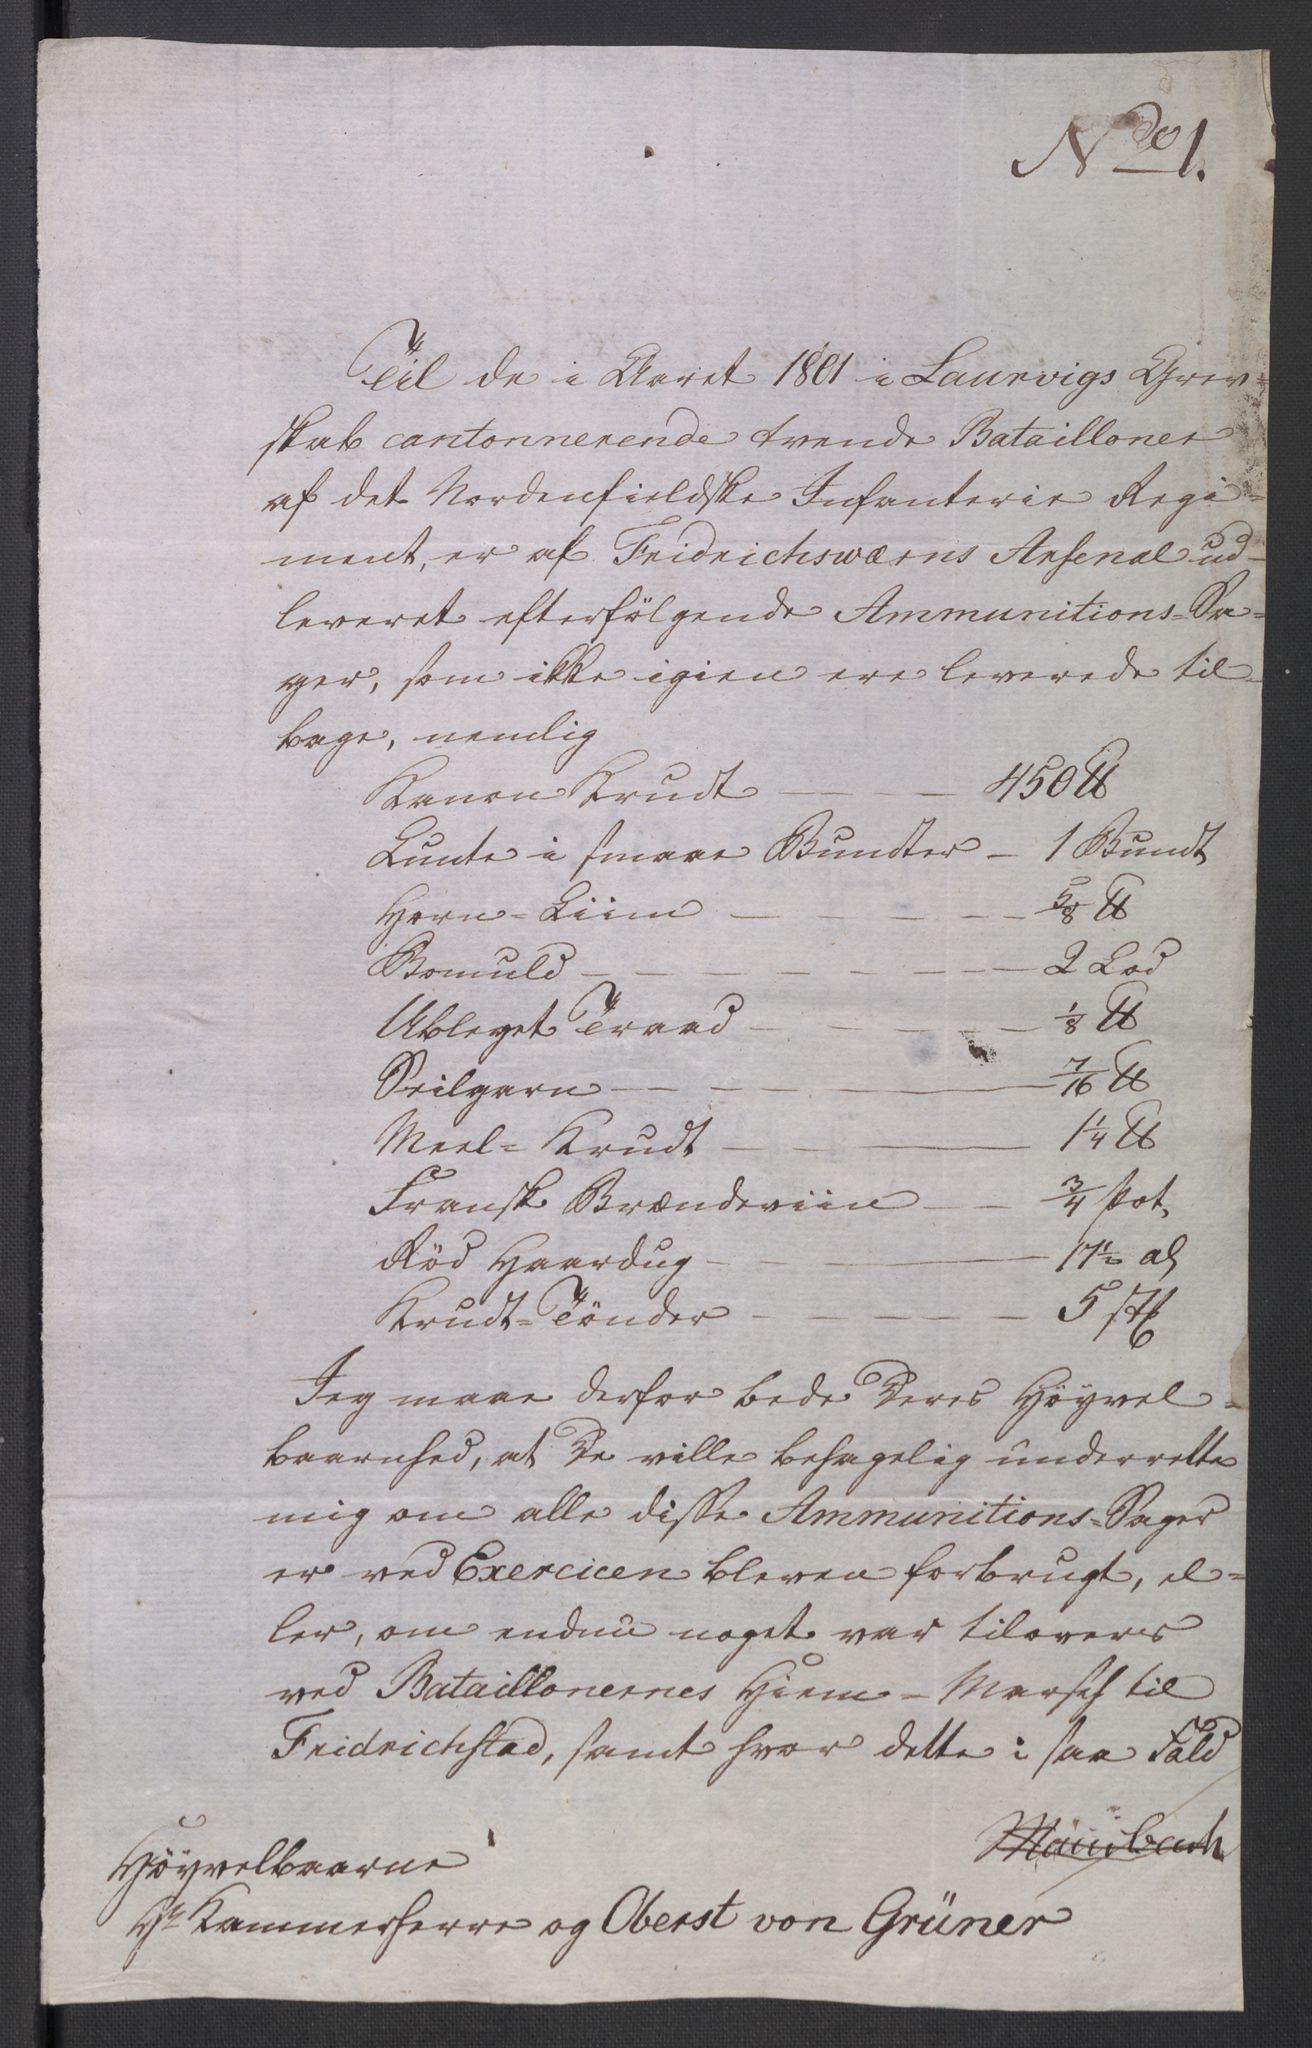 No 1.
Til de i Aaret 1801 i Laurvigs Grev=
skab cantonnerende tvende Batailloner
af det Nordenfieldske Infanterie Regi=
ment, er af Fridrichswærns Arsenal ud-
leveret efterfölgende Ammunitions=Sa=
ger, som ikke igien ere leverede til-
bage, nemlig
Kanon Krudt — — — 450 ℔
Lunte i smaae Bundter — 1 Bundt
Horn=Liim — — — — 5/8 ℔
Bomuld — — — — — — — — 2 Lod
Ubleget Traad — — — — — 1/8 ℔
Seilgarn — — — — 7/16 ℔
Meel=Krudt — — — 1 1/4 ℔
Fransk Brændeviin — — 3/4 Pot,
Röd Haardug — — — — 17 1/2 al
Krudt=Tönder — — — — — 5 st
Jeg maae derfor bede Deres Höyvel=
baarnhed, at De ville behagelig underrette
mig om alle disse Ammunitions=Sager
er ved Exercicen bleven forbrugt, el=
ler, om endnu noget var tilovers
ved Bataillonernes Hiem=Marsch til
Fridrichstad, samt hvor dette i saa Fald
Höyvelbaarne
Hr Kammerherre og Oberst von Grüner